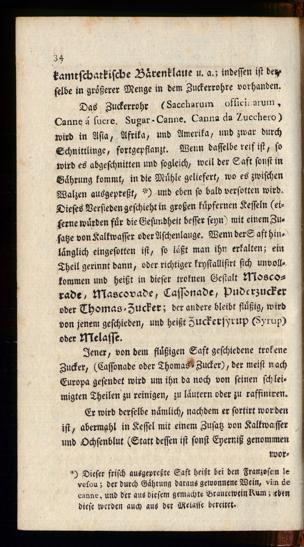 34
kamtschatkische Bärenklaue u. a.; indessen ist der=
selbe in größerer Menge in dem Zuckerrohre vorhanden.
Das Zuckerrohr (Saccharum officinarum,
Canne á sucre, Sugar-Canne, Canna da Zucchero)
wird in Asia, Afrika, und Amerika, und zwar durch
Schnittlinge, fortgepflanzt. Wenn dasselbe reif ist, so
wird es abgeschnitten und sogleich, weil der Saft sonst in
Gährung kommt, in die Mühle geliefert, wo es zwischen
Walzen ausgepreßt, *) und eben so bald versotten wird.
Dieses Versieden geschieht in großen küpfernen Kesseln (ei=
serne würden für die Gesundheit besser seyn) mit einem Zu=
satze von Kalkwasser oder Aschenlauge. Wenn der Saft hin=
länglich eingesotten ist, so läßt man ihn erkalten; ein
Theil gerinnt dann, oder richtiger krystallisirt sich unvoll=
kommen und heißt in dieser troknen Gestalt Mosco=
rade, Mascovade, Cassonade, Puderzucker
oder Thomas=Zucker; der andere bleibt flüßig, wird
von jenem geschieden, und heißt Zuckersyrup (Syrup)
oder Melasse.
Jener, von dem flüßigen Saft geschiedene trokene
Zucker, (Cassonade oder Thomas=Zucker), der meist nach
Europa gesendet wird um ihn da noch von seinen schlei=
migten Theilen zu reinigen, zu läutern oder zu raffiniren.
Er wird derselbe nämlich, nachdem er sortirt worden
ist, abermahl in Kessel mit einem Zusatz von Kalkwasser
und Ochsenblut (Statt dessen ist sonst Eyerniß genommen
wor=
*) Dieser frisch ausgepreßte Saft heißt bei den Franzosen le
vesou; der durch Gährung daraus gewonnene Wein, vin de
canne, und der aus diesem gemachte Branntwein Rum; eben
diese werden auch aus der Melasse bereitet.